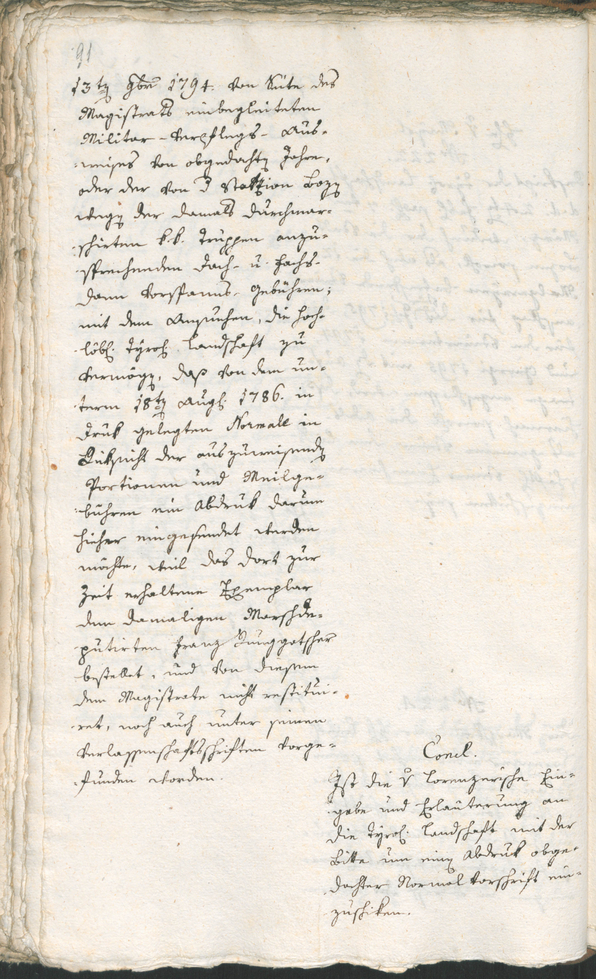 91
13ty 9ber 1794. von Seite des
Magistrats einbegleiteten
Militar-Verpflegs-Aus-
weises von obgedachty Jahre,
oder der von d Station Bozy
wegy der damals durchmar-
schirten k. k. Truppen anzu-
sprechenden Dach- u. Fachs-
dann Vorspanns-Gebühren;
mit dem Ansuchen, die hoch-
löbl. Tyrol. Landschaft zu
vermögy, daß von dem un-
term 18ty Augst. 1786. in
Druk gelegten Normale in
Rüksicht der auszuweisendy
Portionen und Meilge-
bühren ein Abdruk darum
hieher eingesendet werden
möchte, weil das dort zur
Zeit erhaltene Exemplar
dem damaligen Marschde-
putirten Franz Runggatscher
bestellet, und von diesem
dem Magistrate nicht restitui-
ret, noch auch unter seinen
Verlassenschaftsschriften vorge-
funden worden.
Concl.
Ist die v Lorenzerische Ein-
gabe und Erläuterung an
die Tyrol. Landschaft mit der
Bitte um einy Abdruk obge-
dachter Normalvorschrift ein-
zushiken.